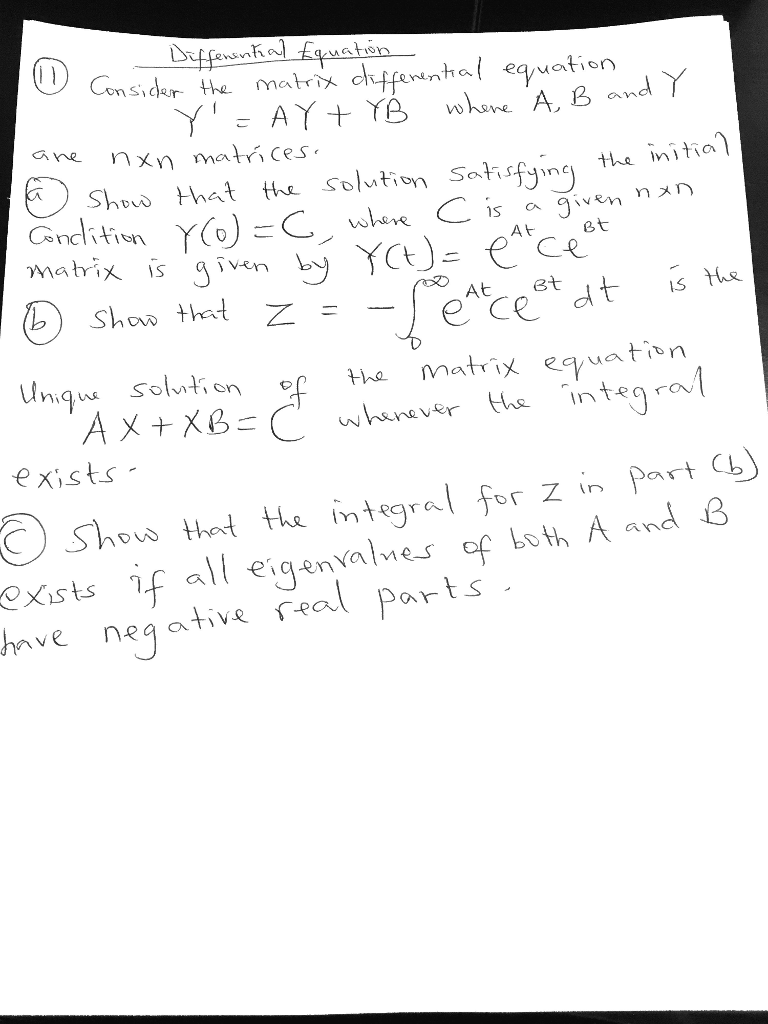 Differential Equation
(11) Consider the matrix differential equation
Y' = AY + YB where A, B and Y
are nxn matrices.
(a) Show that the solution satisfying the initial
Condition Y(0) = C, where C is a given nxn
matrix is given by Y(t) = e^{At} C e^{Bt}
(b) Show that Z = - ∫_0^∞ e^{At} C e^{Bt} dt is the
Unique solution of the matrix equation
AX + XB = C whenever the integral
exists.
(c) Show that the integral for Z in part (b)
exists if all eigenvalues of both A and B
have negative real parts.